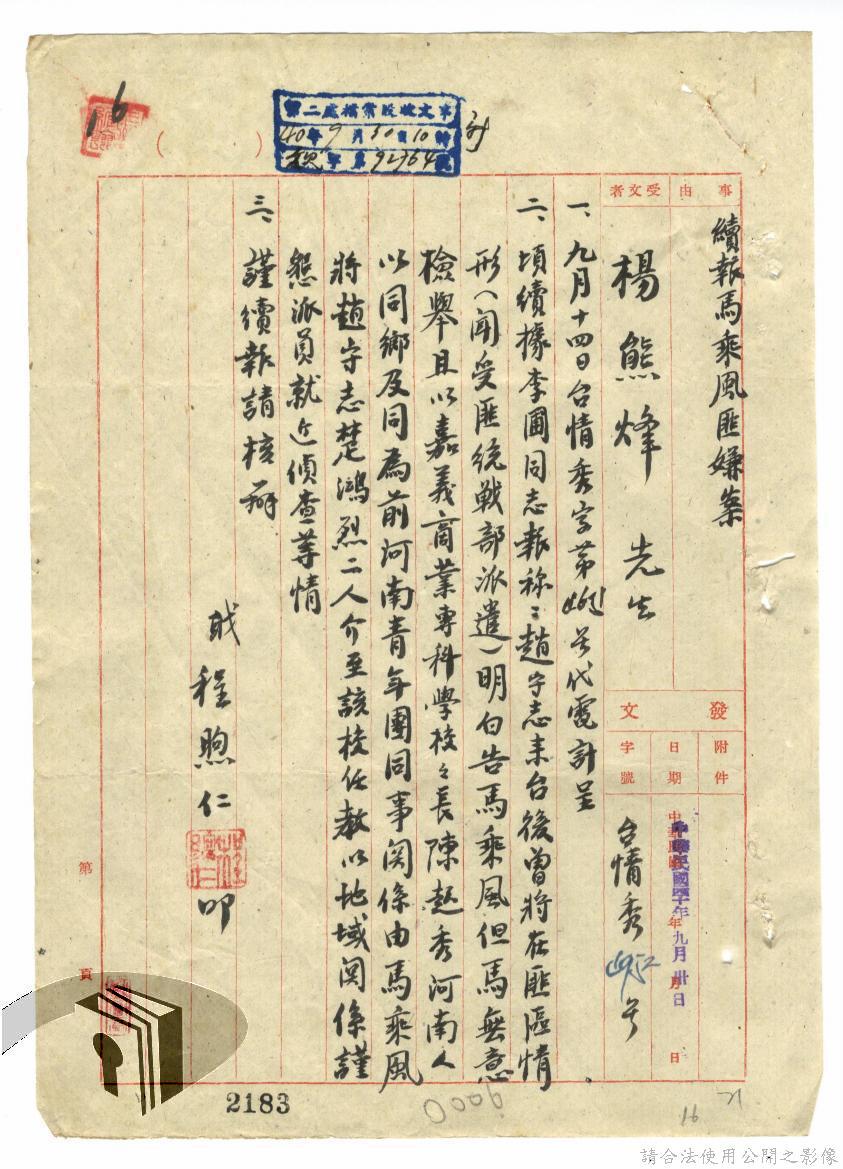 16
第二處檔案股收文章
40年9月30日10時
字第92764號
事由
續報馬乘風匪嫌案
受文者
楊熊烽 先生
發文
附件
日期
中華民國四十年九月卅日
字號
台情秀 號
一、九月十四日台情秀字第 號代電計呈。
二、頃續據李圃同志報称:趙守志来台後曾將在匪區情
形(聞受匪統戰部派遣)明白告馬乘風但馬無意
檢舉且以嘉義商業專科學校々長陳赵秀河南人
以同鄉及同為前河南青年團同事関係由馬乘風
將趙守志楚鴻烈二人介至該校任教以地域関係謹
懇派員就近偵查等情
三、謹續報請核辦
職 程煦仁 叩
第 頁
2183
9000
16
請合法使用公開之影像